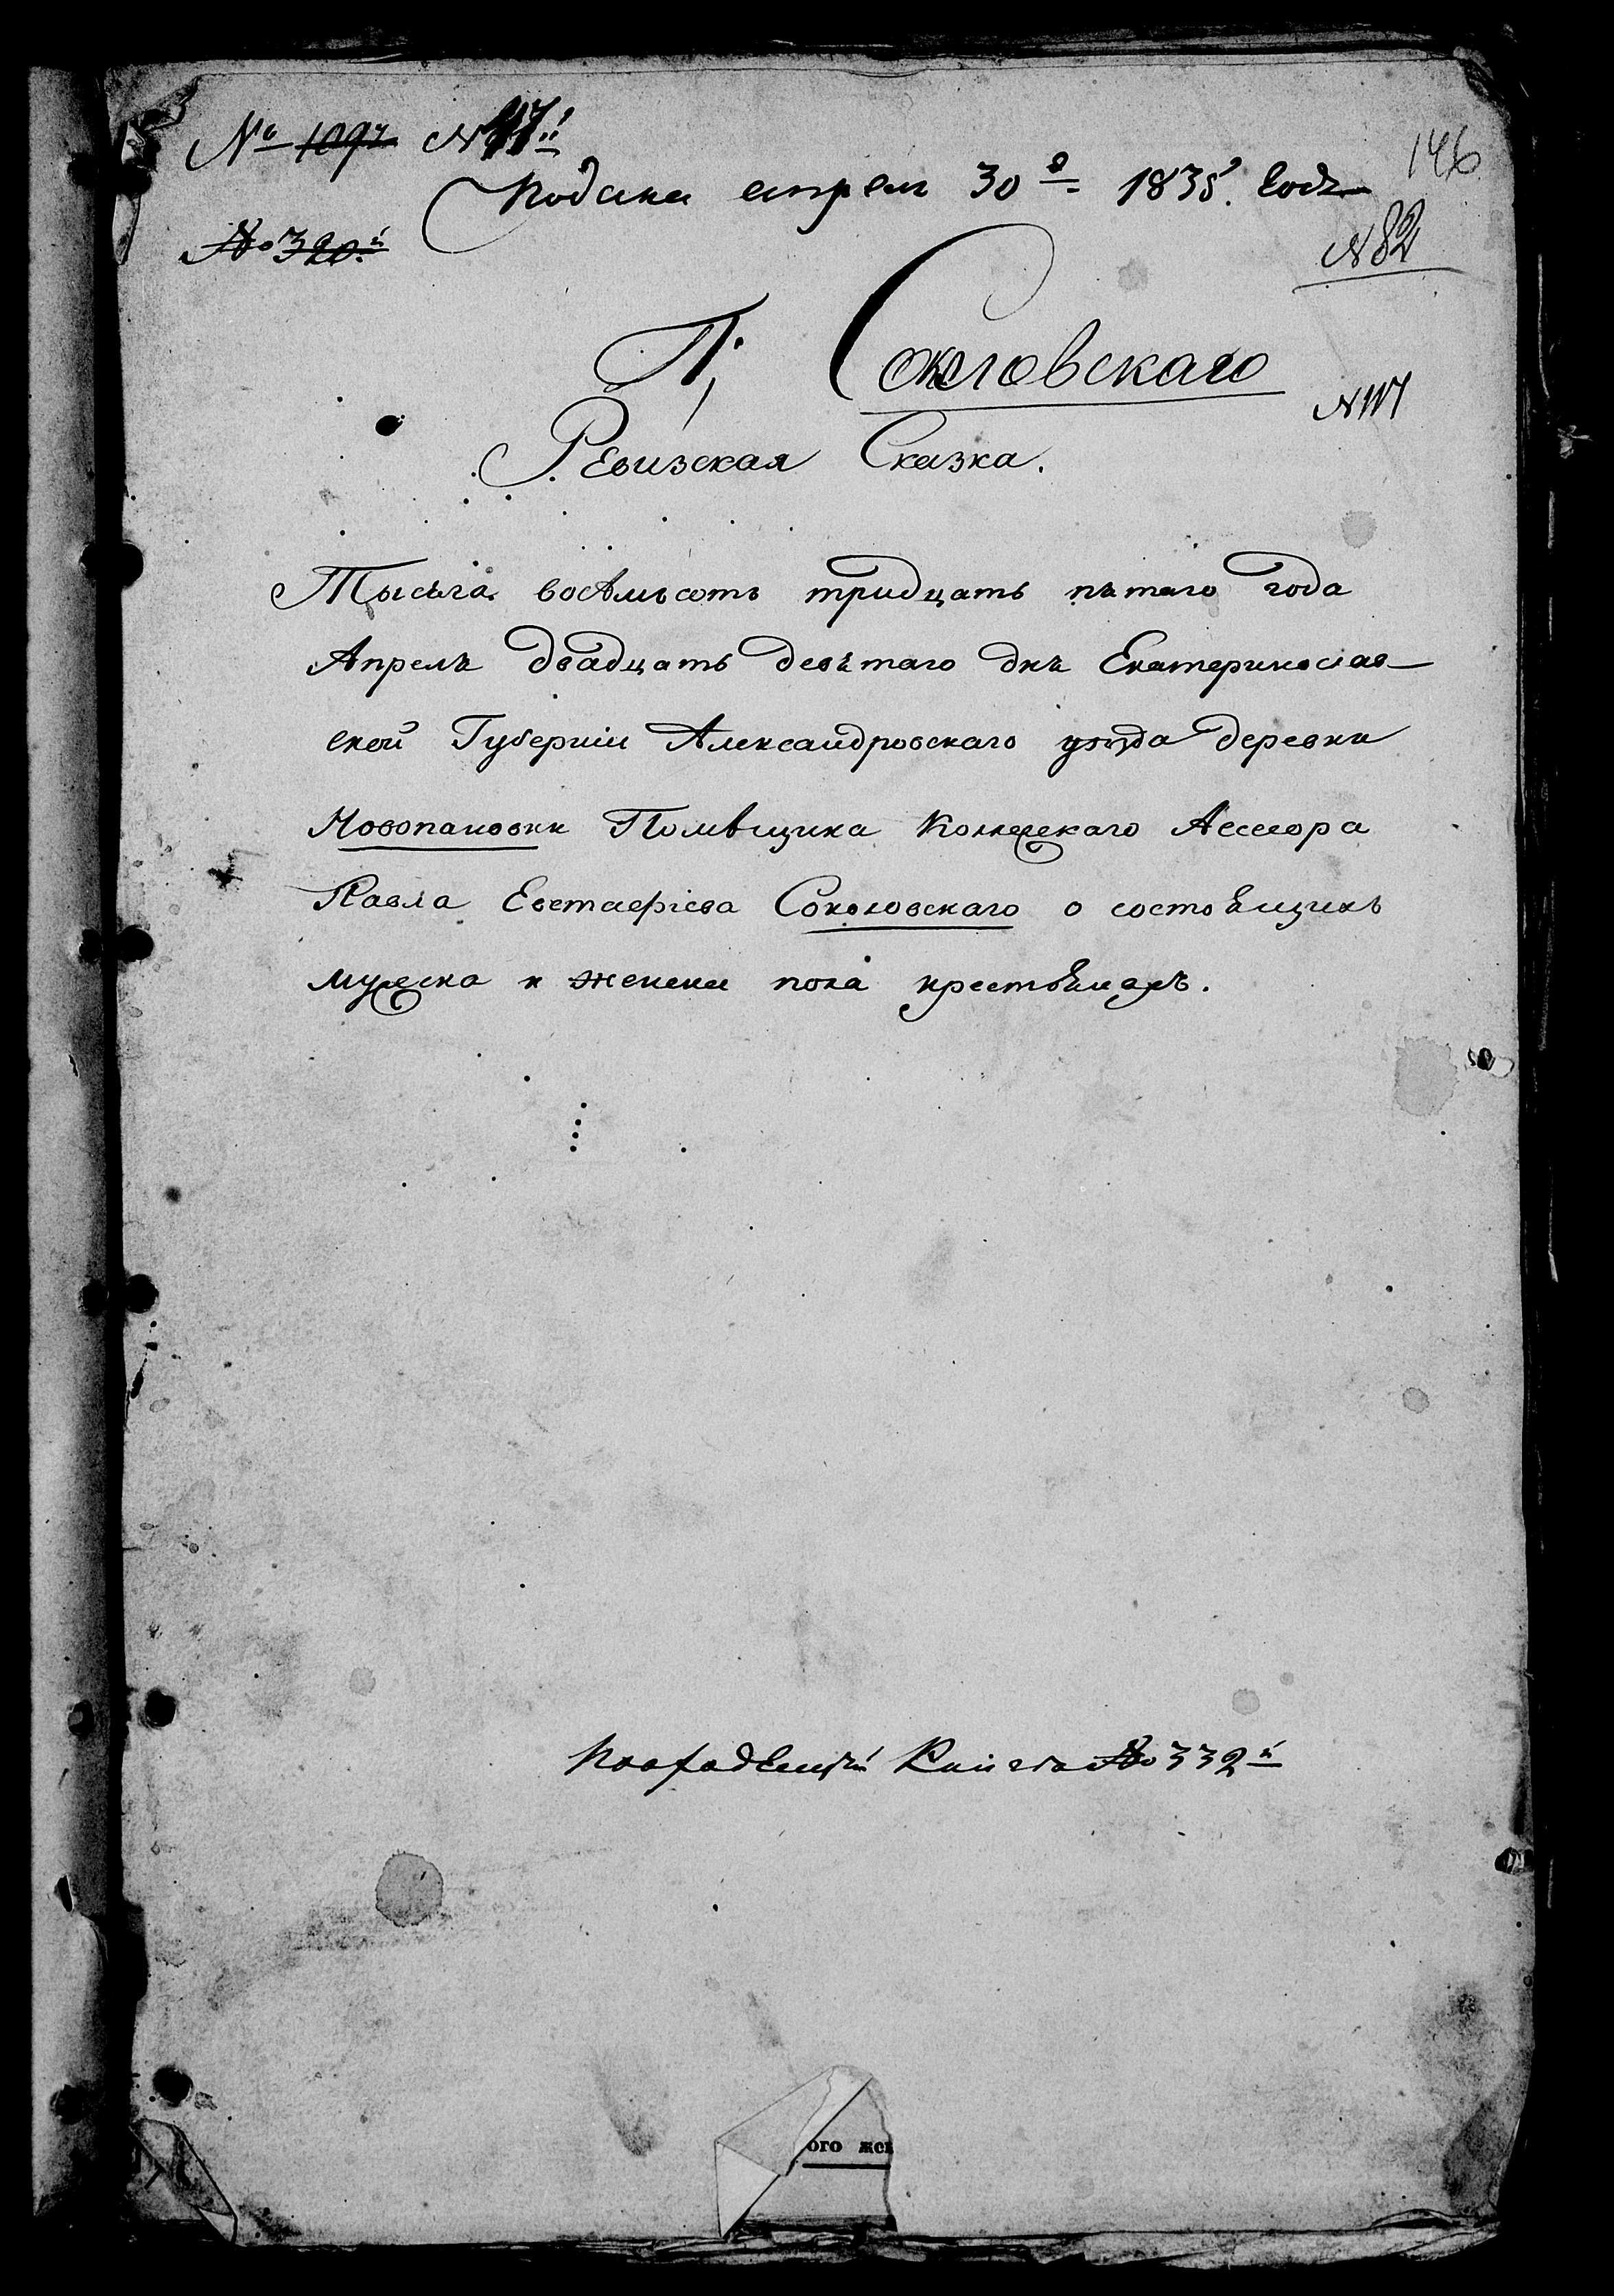 № 1097 № 117й
146
Подана апреля 30го 1835 года
№ 320й
№ 82
П. Соколовскаго
№ 117
Ревизская Сказка.
Тысяча восѣмьсотъ тридцать пѣтаго года
Апрелѣ двадцать девѣтаго днѣ Екатеринослав-
ской Губерніи Александровскаго уѣзда деревни
Новопановки Помѣщика Колежскаго Асесора
Павла Евстафіева Соколовскаго о состоѣщихъ
мужеска и женска пола крестьѣнахъ.
Книга № 332й
ого жен